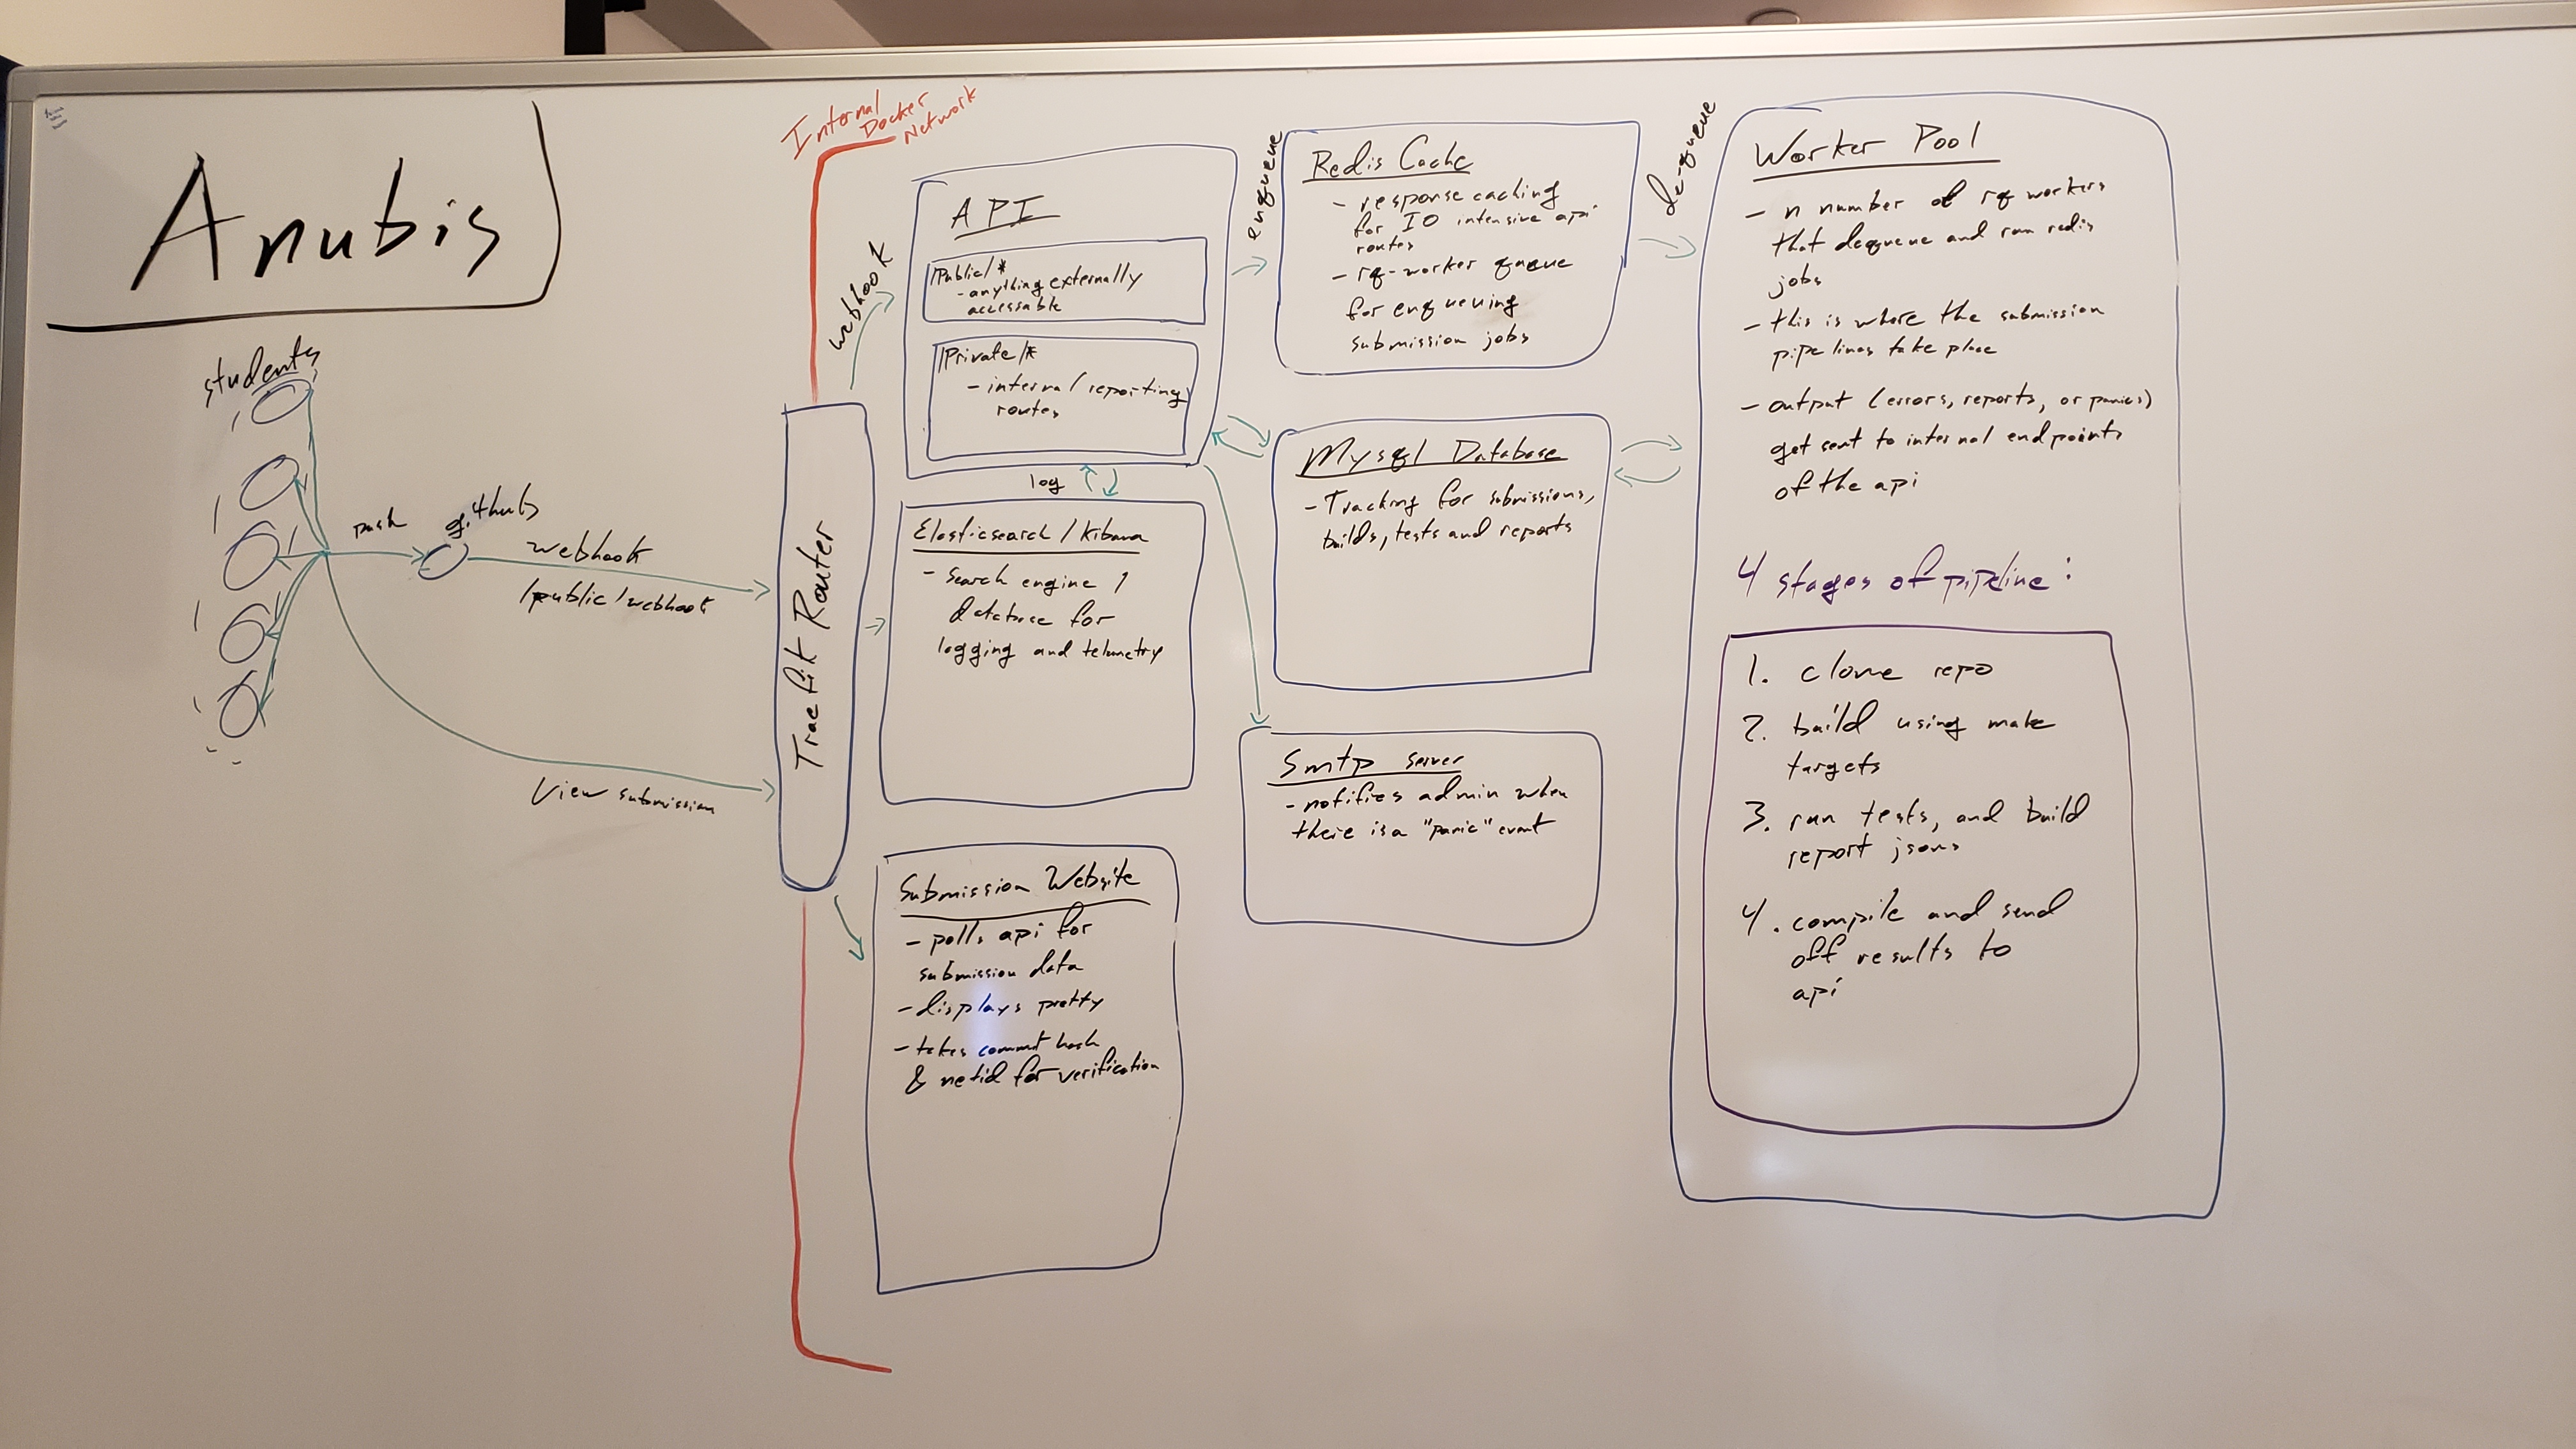 Anubis
students
push
github
webhook
/public/webhook
View submission
Internal
Docker
Network
Traefik Router
webhook
API
/Public/*
- anything externally
accessable
/Private/*
- internal reporting
routes
log
Elasticsearch / Kibana
- search engine /
database for
logging and telemetry
Submission Website
- polls api for
submission data
- displays pretty
- takes commit hash
& netid for verification
enqueue
Redis Cache
- response caching
for IO intensive api
routes
- rq-worker queue
for enqueuing
submission jobs
Mysql Database
- Tracking for submissions,
builds, tests and reports
Smtp server
- notifies admin when
there is a "panic" event
de-queue
Worker Pool
- n number of rq workers
that dequeue and run redis
jobs
- this is where the submission
pipelines take place
- output (errors, reports, or panics)
get sent to internal endpoints
of the api
4 stages of pipeline:
1. clone repo
2. build using make
targets
3. run tests, and build
report jsons
4. compile and send
off results to
api